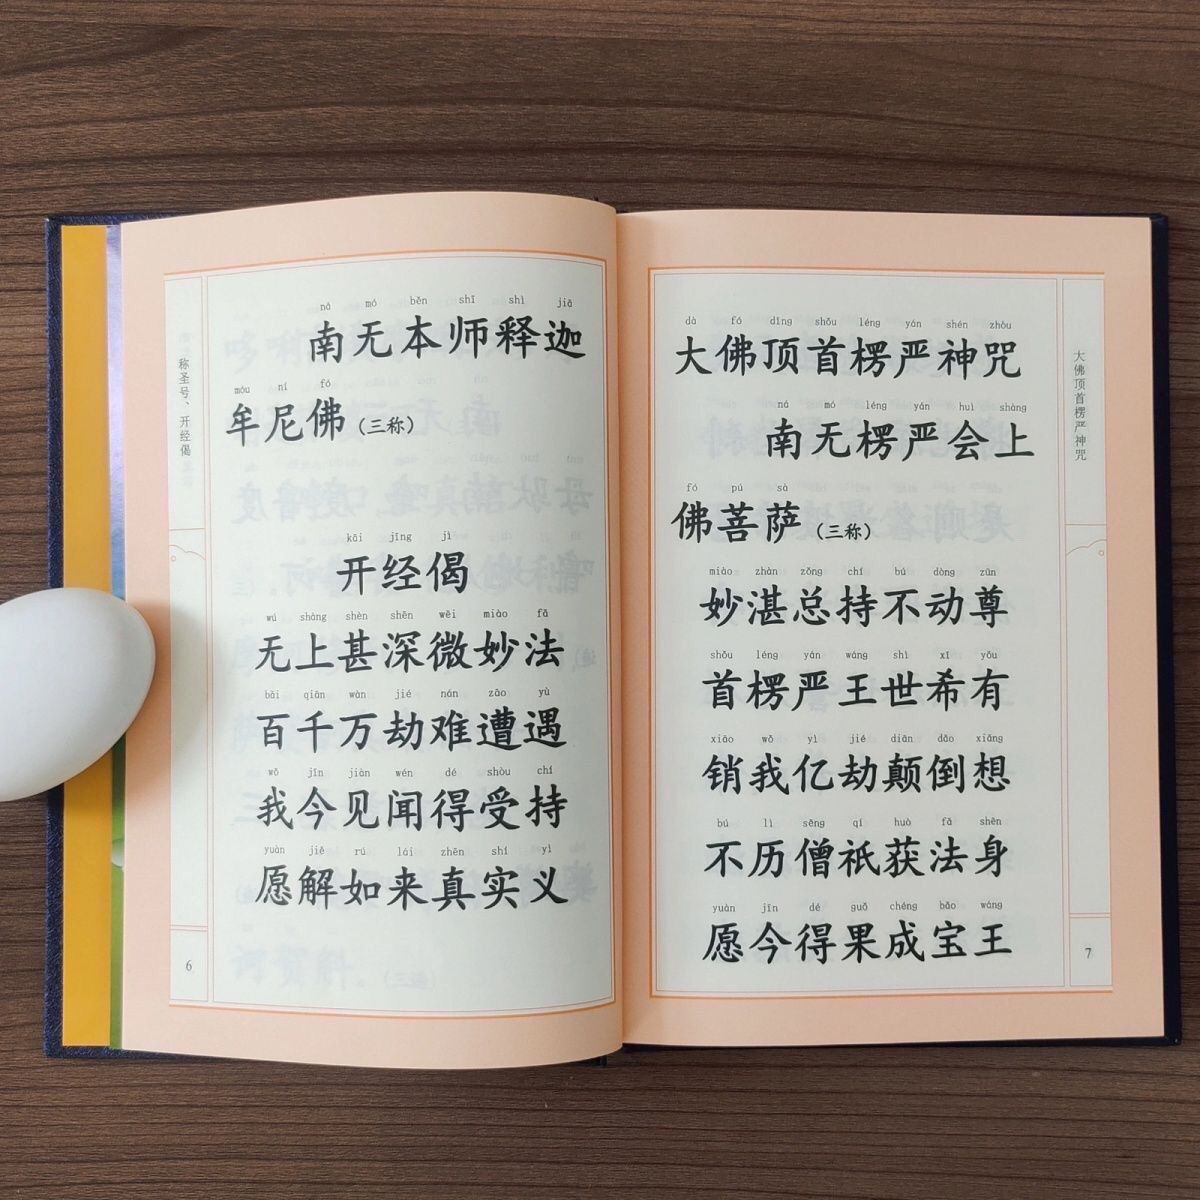 称圣号、开经偈
ná mó běn shī shì jiā
南无本师释迦
móu ní fó
牟尼佛（三称）
kāi jīng jì
开经偈
wú shàng shèn shēn wēi miào fǎ
无上甚深微妙法
bǎi qiān wàn jié nán zāo yù
百千万劫难遭遇
wǒ jīn jiàn wén dé shòu chí
我今见闻得受持
yuàn jiě rú lái zhēn shí yì
愿解如来真实义
6
dà fó dǐng shǒu léng yán shén zhòu
大佛顶首楞严神咒
ná mó léng yán huì shàng
南无楞严会上
fó pú sà
佛菩萨（三称）
miào zhàn zǒng chí bú dòng zūn
妙湛总持不动尊
shǒu léng yán wáng shì xī yǒu
首楞严王世希有
xiāo wǒ yì jié diān dǎo xiǎng
销我亿劫颠倒想
bú lì sēng qí huò fǎ shēn
不历僧祇获法身
yuàn jīn dé guǒ chéng bǎo wáng
愿今得果成宝王
大佛顶首楞严神咒
7